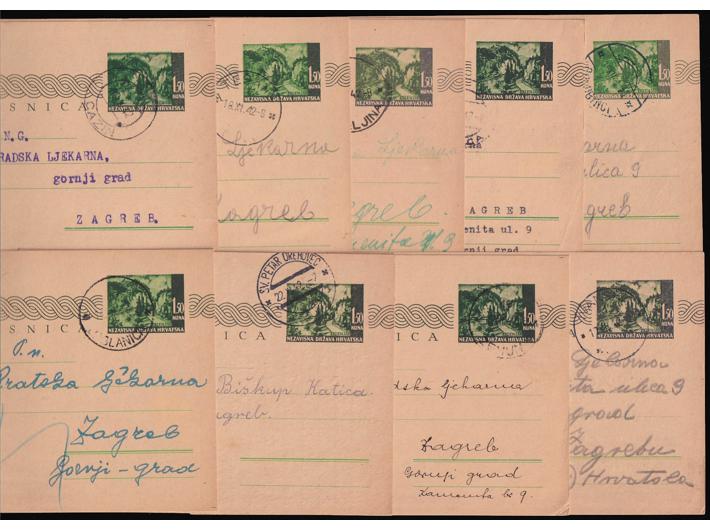 1.50
KUNA
NEZAVISNA DRŽAVA HRVATSKA
SNICA
CAZIN
N.G.
RADSKA LJEKARNA,
gornji grad
ZAGREB.
1.50
KUNA
NEZAVISNA DRŽAVA HRVATSKA
18.XI.42-8
Ljekarna
Zagreb
1.50
KUNA
NEZAVISNA DRŽAVA HRVATSKA
LJINA
Ljekarna
greb.
enita
9
1.50
KUNA
NEZAVISNA DRŽAVA HRVATSKA
AGREB
enita ul. 9
rnji grad
1.50
KUNA
NEZAVISNA DRŽAVA HRVATSKA
arna
lica 9
greb
1.50
KUNA
NEZAVISNA DRŽAVA HRVATSKA
SNICA
LANICA
P.n.
Gčkarna
Zagreb
Gornji-grad
1.50
KUNA
NEZAVISNA DRŽAVA HRVATSKA
SV. PETAR OREHOVEC
NICA
Biškup Katica.
agreb.
1.50
KUNA
NEZAVISNA DRŽAVA HRVATSKA
ICA
dska Ljekarna
Zagreb
Gornji grad
Kamenita br 9.
1.50
KUNA
NEZAVISNA DRŽAVA HRVATSKA
Ljekarna
ta ulica 9
grad
Zagrebu
Hrvatska